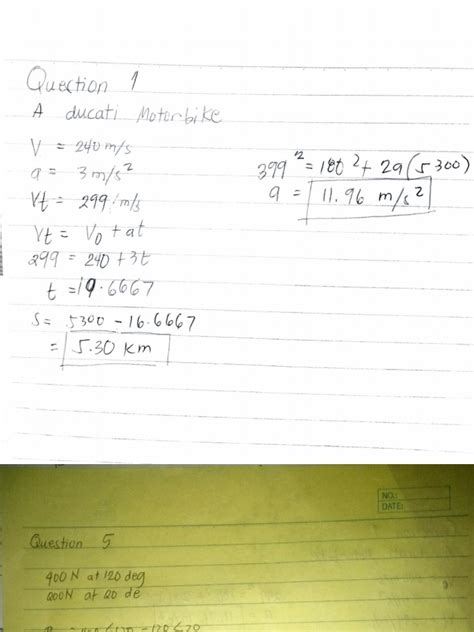 Question 1
A ducati Motorbike
V = 240 m/s
a = 3 m/s²
Vt = 299 m/s
Vt = V0 + at
299 = 240 + 3t
t = 19.6667
S = 5300 - 16.6667
= 5.30 km
399² = 180² + 2a(5300)
a = 11.96 m/s²
NO.:
DATE:
Question 5
400 N at 120 deg
200N at 20 de